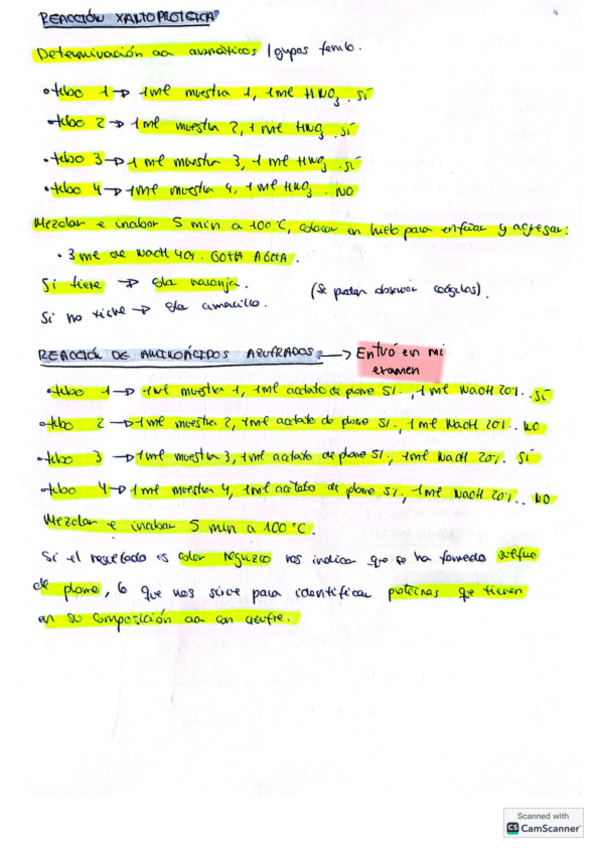 REACCIÓN XANTOPROTEICA
Determinación aa aromáticos / grupos fenilo.
• tubo 1 → 1ml muestra 1, 1ml HNO3. SÍ
• tubo 2 → 1ml muestra 2, 1ml HNO3. SÍ
• tubo 3 → 1ml muestra 3, 1ml HNO3. SÍ
• tubo 4 → 1ml muestra 4, 1ml HNO3. NO
Mezclar e incubar 5 min a 100°C, colocar en hielo para enfriar y agregar:
• 3ml de NaOH 40%. GOTA A GOTA.
Si tiene → sol. naranja. (Se pueden observar coágulos).
Si no tiene → sol. amarillo.
REACCIÓN DE AMINOÁCIDOS AZUFRADOS. → Entró en mi
examen
• tubo 1 → 1ml muestra 1, 1ml acetato de plomo 5%., 1ml NaOH 20%.. SÍ
• tubo 2 → 1ml muestra 2, 1ml acetato de plomo 5%., 1ml NaOH 20%.. NO
• tubo 3 → 1ml muestra 3, 1ml acetato de plomo 5%, 1ml NaOH 20%. SÍ
• tubo 4 → 1ml muestra 4, 1ml acetato de plomo 5%., 1ml NaOH 20%.. NO
Mezclar e incubar 5 min a 100°C.
Si el resultado es color negruzco nos indica que se ha formado sulfuro
de plomo, lo que nos sirve para identificar proteínas que tienen
en su composición aa con azufre.
Scanned with
CS CamScanner